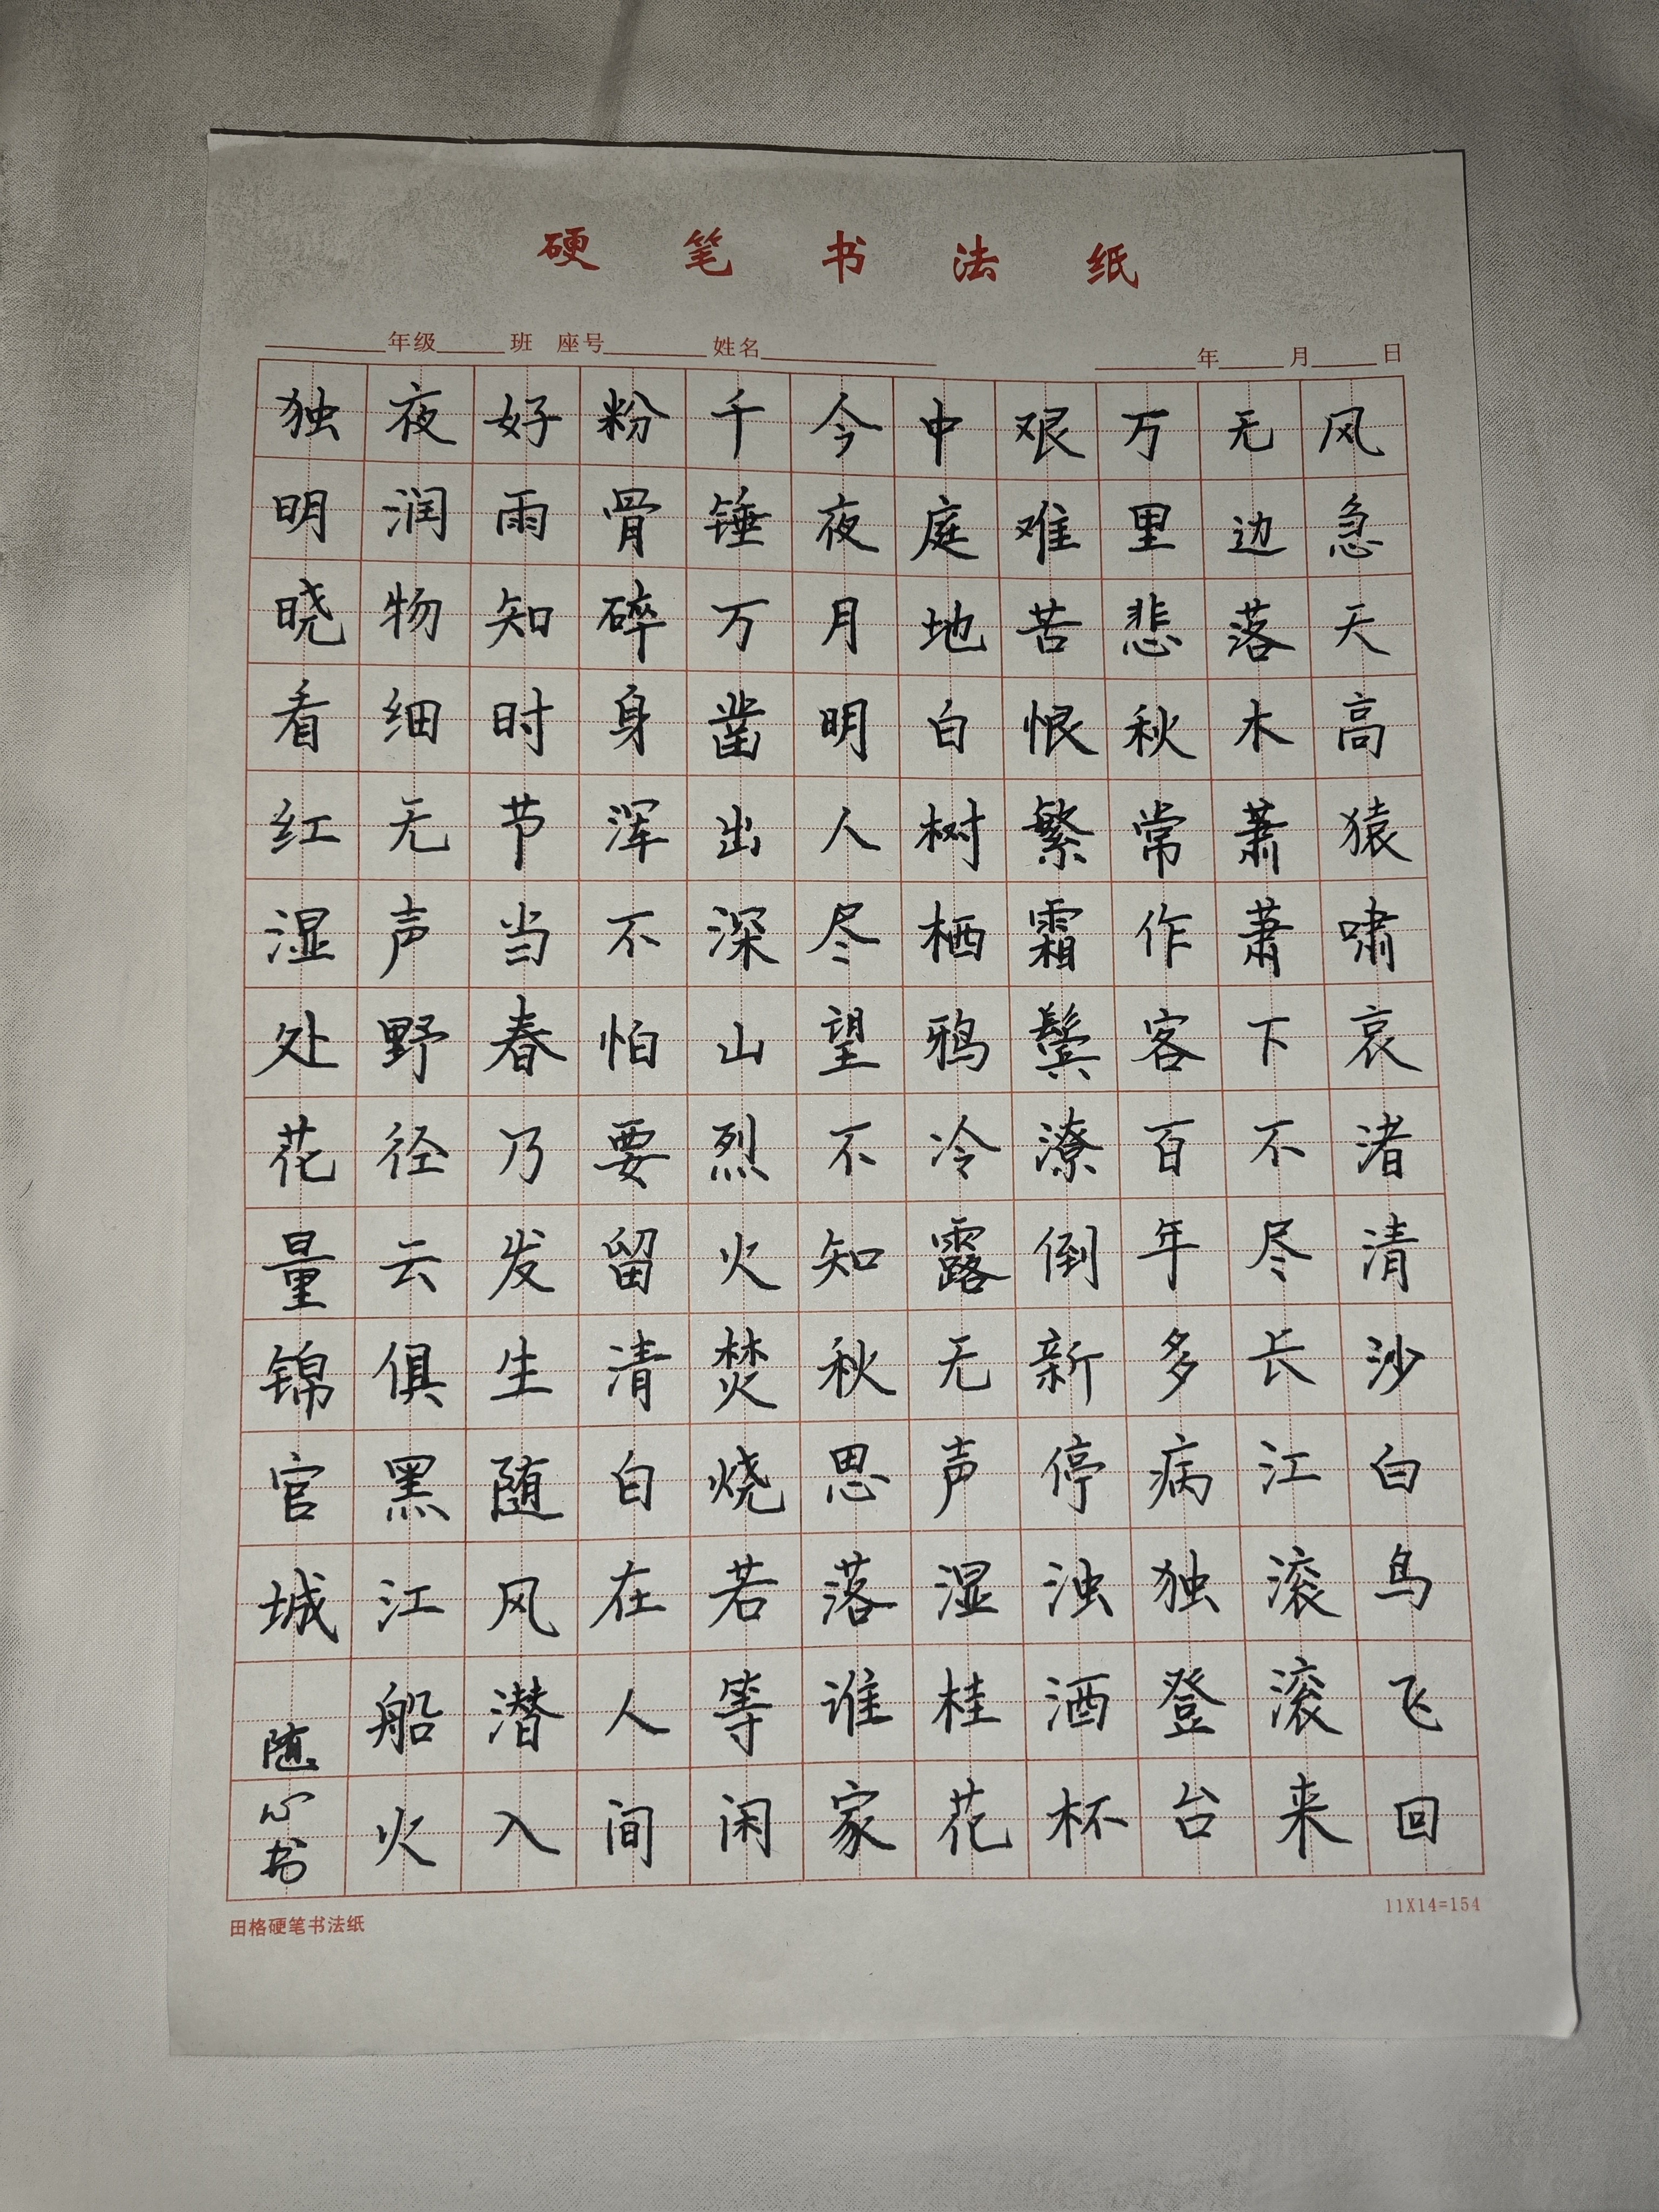 硬笔书法纸
年级 班 座号 姓名 年 月 日
风急天高猿啸哀渚清沙白鸟飞回
无边落木萧萧下不尽长江滚滚来
万里悲秋常作客百年多病独登台
艰难苦恨繁霜鬓潦倒新停浊酒杯
中庭地白树栖鸦冷露无声湿桂花
今夜月明人尽望不知秋思落谁家
千锤万凿出深山烈火焚烧若等闲
粉骨碎身浑不怕要留清白在人间
好雨知时节当春乃发生随风潜入
夜润物细无声野径云俱黑江船火
独明晓看红湿处花量锦官城
随心书
田格硬笔书法纸
11X14=154